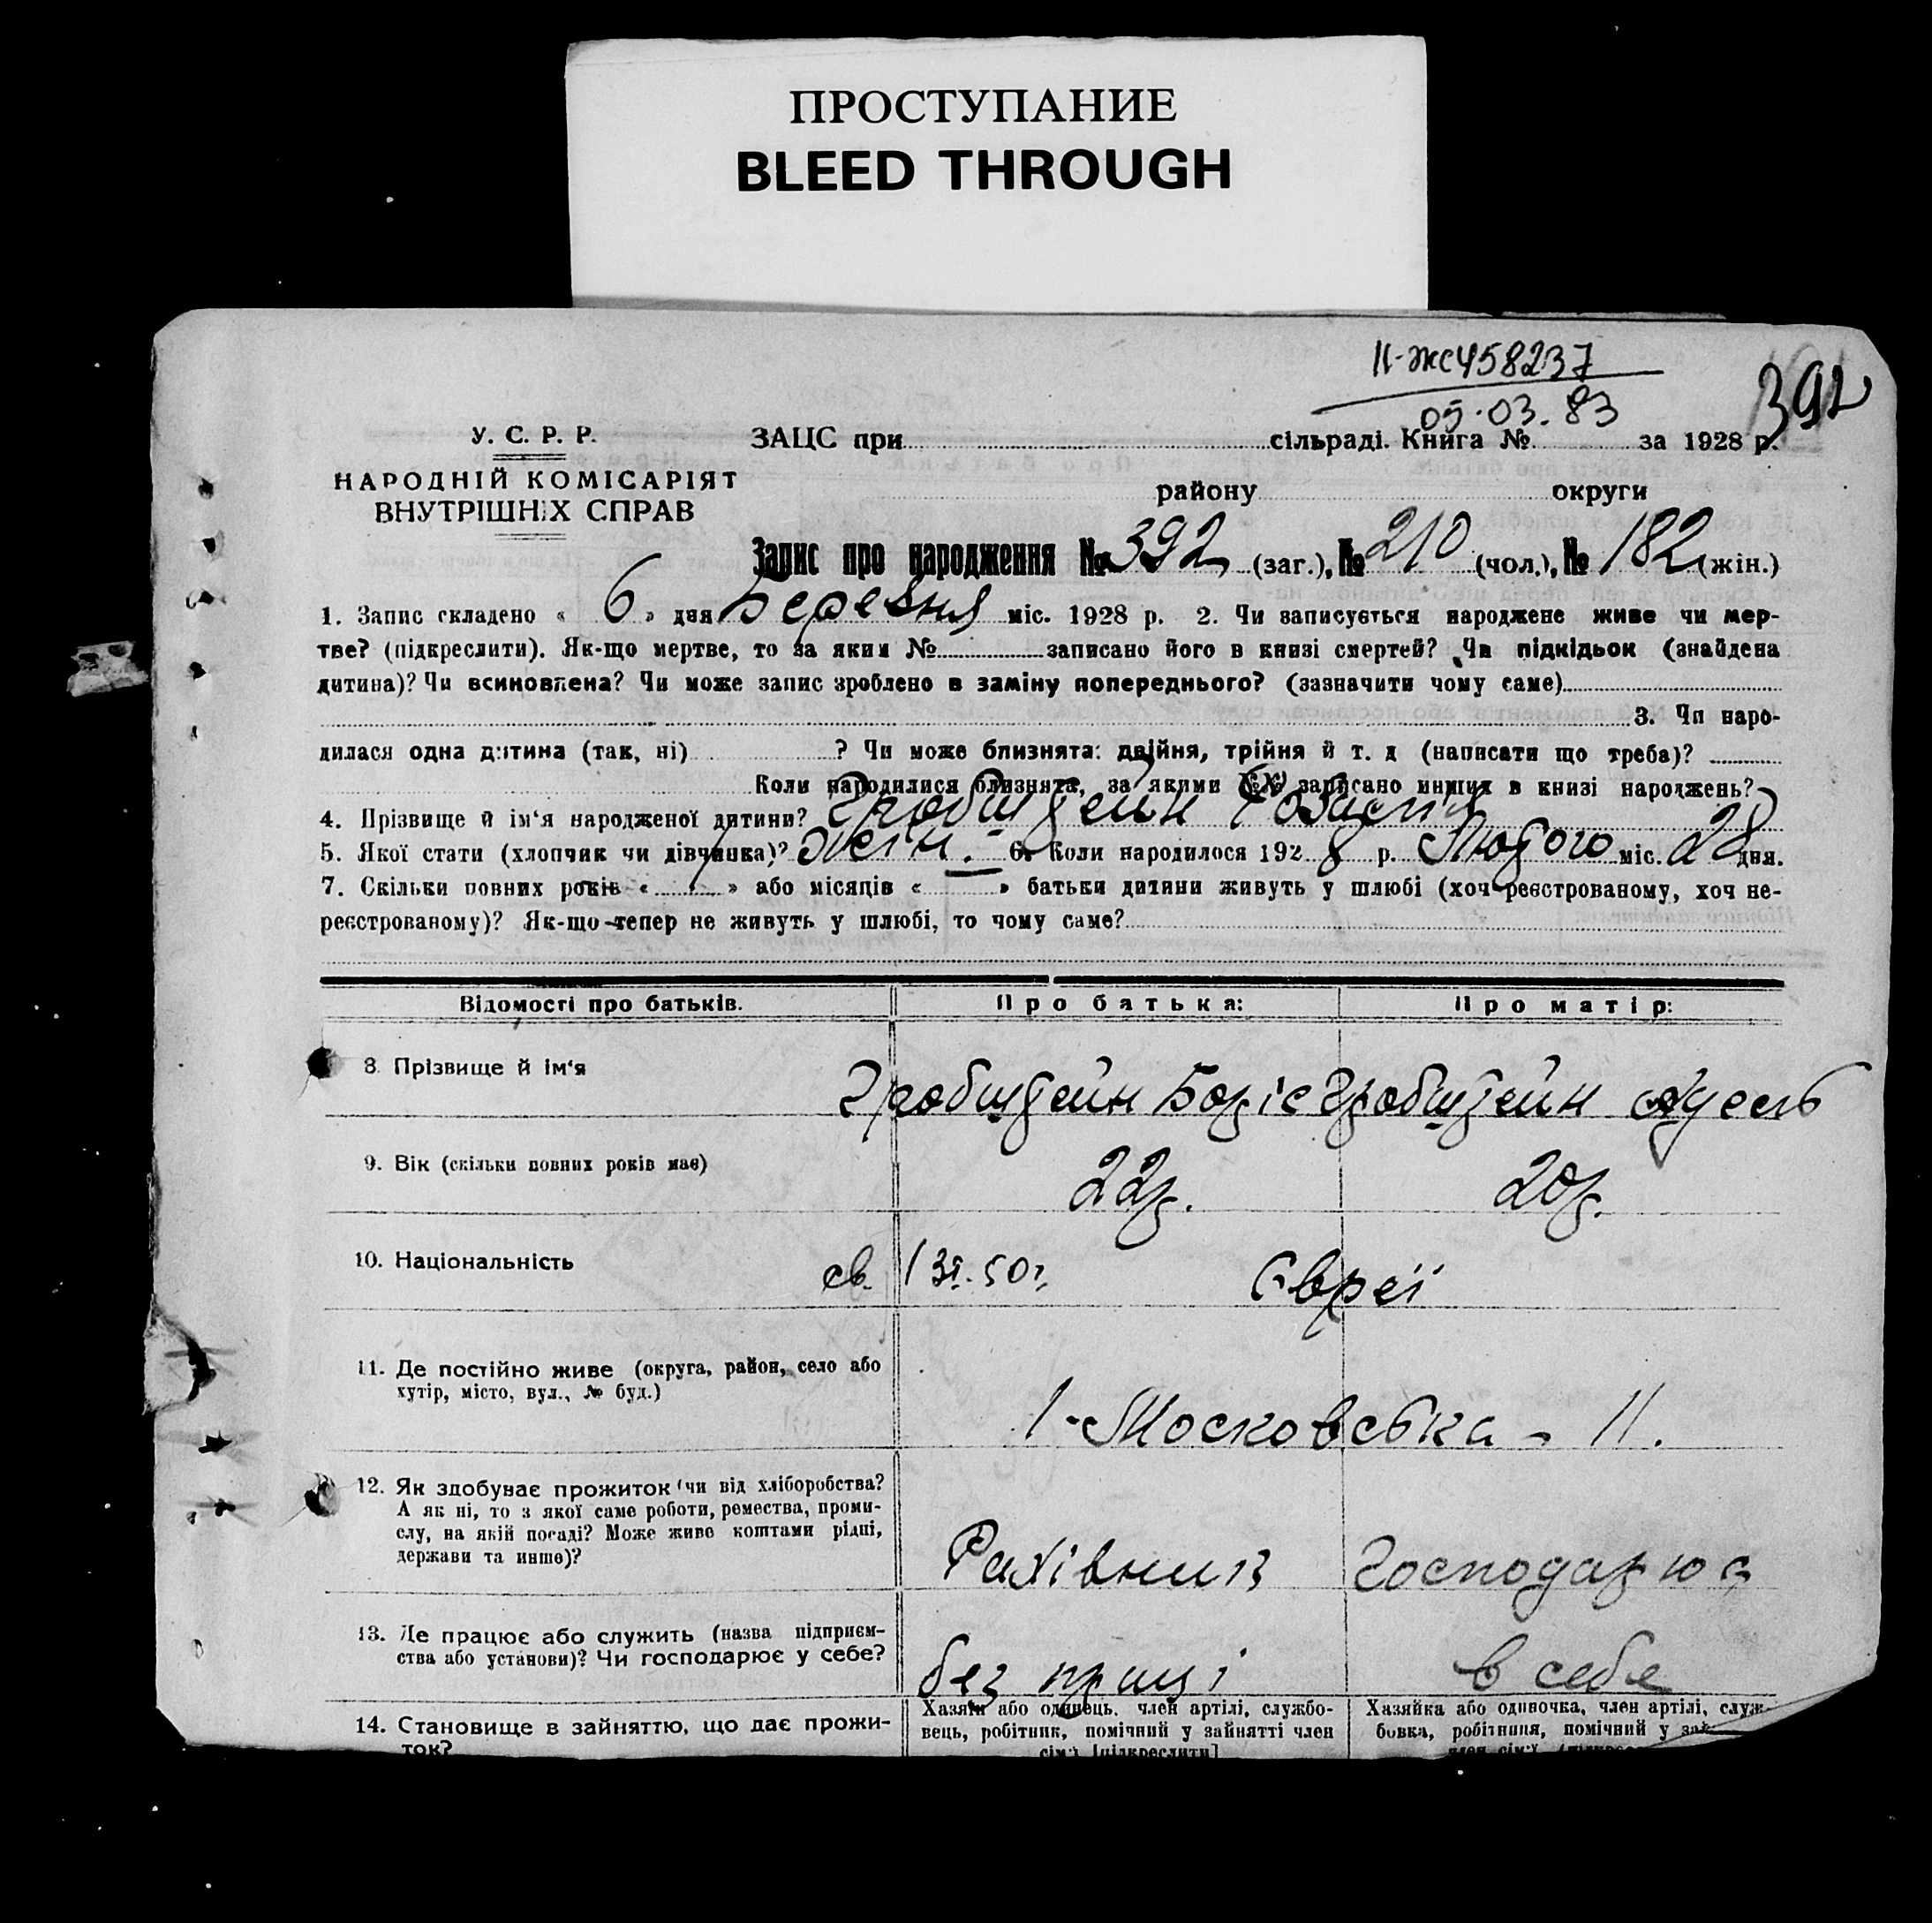 ПРОСТУПАНИЕ
BLEED THROUGH
II-ЖС458237
05.03.83
392
У. С. Р. Р.
НАРОДНІЙ КОМІСАРІЯТ
ВНУТРІШНІХ СПРАВ
ЗАЦС при сільраді. Книга № за 1928 р.
району округи
Запис про народження № 392 (заг.), № 210 (чол.), № 182 (жін.)
1. Запис складено « 6 » дня Березня міс. 1928 р. 2. Чи записується народжене живе чи мер-
тве? (підкреслити). Як-що мертве, то за яким № записано його в книзі смертей? Чи підкідьок (знайдена
дитина)? Чи всиновлена? Чи може запис зроблено в заміну попереднього? (зазначити чому саме)
3. Чи наро-
дилася одна дитина (так, ні) ? Чи може близнята: двійня, трійня й т. д (написати що треба)?
Коли народилися близнята, за якими №№ записано инших в книзі народжень?
4. Прізвище й ім‘я народженої дитини? Гробштейн
5. Якої стати (хлопчик чи дівчинка)? Жін. 6. Коли народилося 1928 р. Лютого міс. 28 дня.
7. Скільки повних років « » або місяців « » батьки дитини живуть у шлюбі (хоч реєстрованому, хоч не-
реєстрованому)? Як-що тепер не живуть у шлюбі, то чому саме?
Відомості про батьків. Про батька: Про матір:
8. Прізвище й ім‘я Гробштейн Боріс Гробштейн
9. Вік (скільки повних років має) 22р. 20р.
10. Національність св. Євреї
11. Де постійно живе (округа, район, село або
хутір, місто, вул., № буд.)
1-Московська - 11.
12. Як здобуває прожиток (чи від хліборобства?
А як ні, то з якої саме роботи, ремества, проми-
слу, на якій посаді? Може живе коштами рідні,
держави та инше)?
Рахівник Господарює
13. Де працює або служить (назва підприєм-
ства або установи)? Чи господарює у себе?
без праці в себе
14. Становище в зайняттю, що дає прожи-
ток?
Хазяїн або одинець, член артілі, службо-
вець, робітник, помічний у зайнятті член
сім'ї [підкреслити]
Хазяйка або одиночка, член артілі, служ-
бовка, робітниця, помічний у
член сім'ї